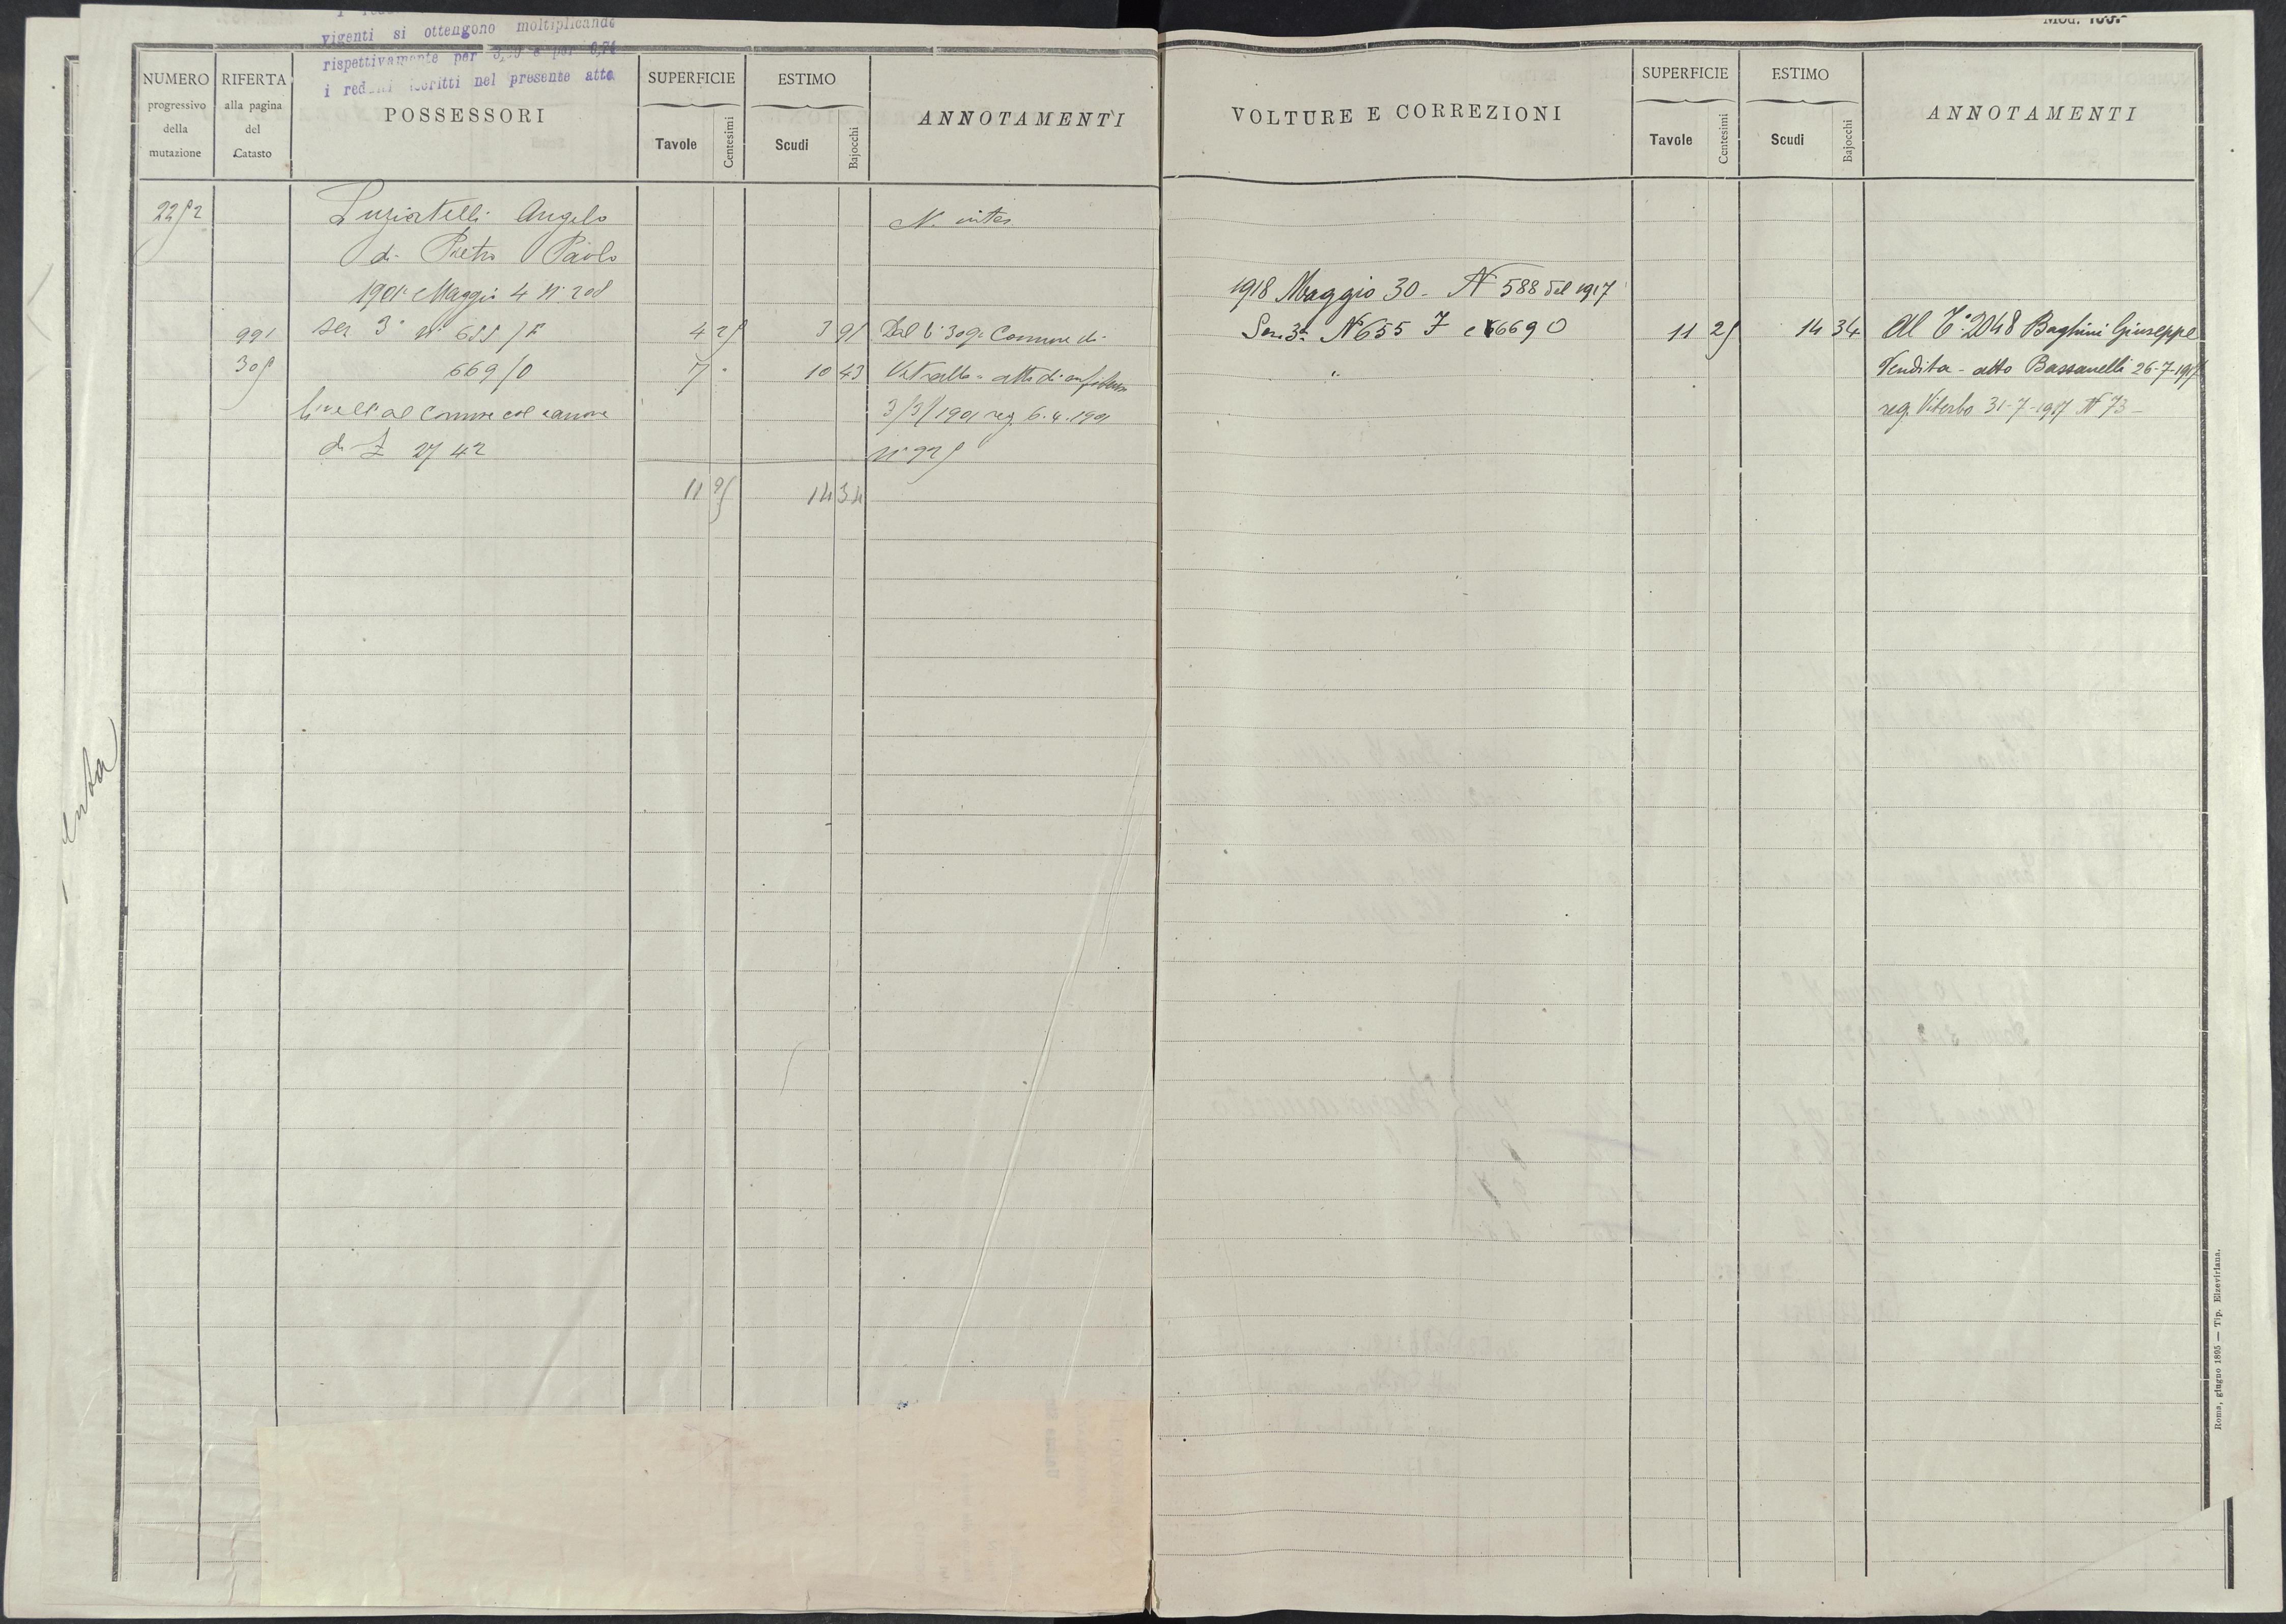 vigenti si ottengono moltiplicando
rispettivamente per e per 0,74
i redditi iscritti nel presente atto
NUMERO
progressivo
della
mutazione
RIFERTA
alla pagina
del
Catasto
POSSESSORI
SUPERFICIE
Tavole
Centesimi
ESTIMO
Scudi
Bajocchi
ANNOTAMENTI
2252
Luziatelli Angelo
N. intes
di Pietro Paolo
1901 Maggio 4 N. 208
991 sez 3ª n° 655/F 4 25 3 91 Dal 309 Comune di
305 669/O 7 " 10 43 Vetralla atto di
livell. al Comune col canone 3/3/1901 reg. 6.4.1901
di £ 27 42 N° 925
11 25 14 34
Mod. 133.
VOLTURE E CORREZIONI
SUPERFICIE
Tavole
Centesimi
ESTIMO
Scudi
Bajocchi
ANNOTAMENTI
1918 Maggio 30 - N 588 del 1917
Sez. 3ª N 655 F e 669 O 11 25 14 34 Al T.° 2048 Baghini Giuseppe
Vendita - atto Bassanelli 26-7-1917
reg. Viterbo 31-7-1917 N 73 -
Roma, giugno 1895 — Tip. Elzeviriana.